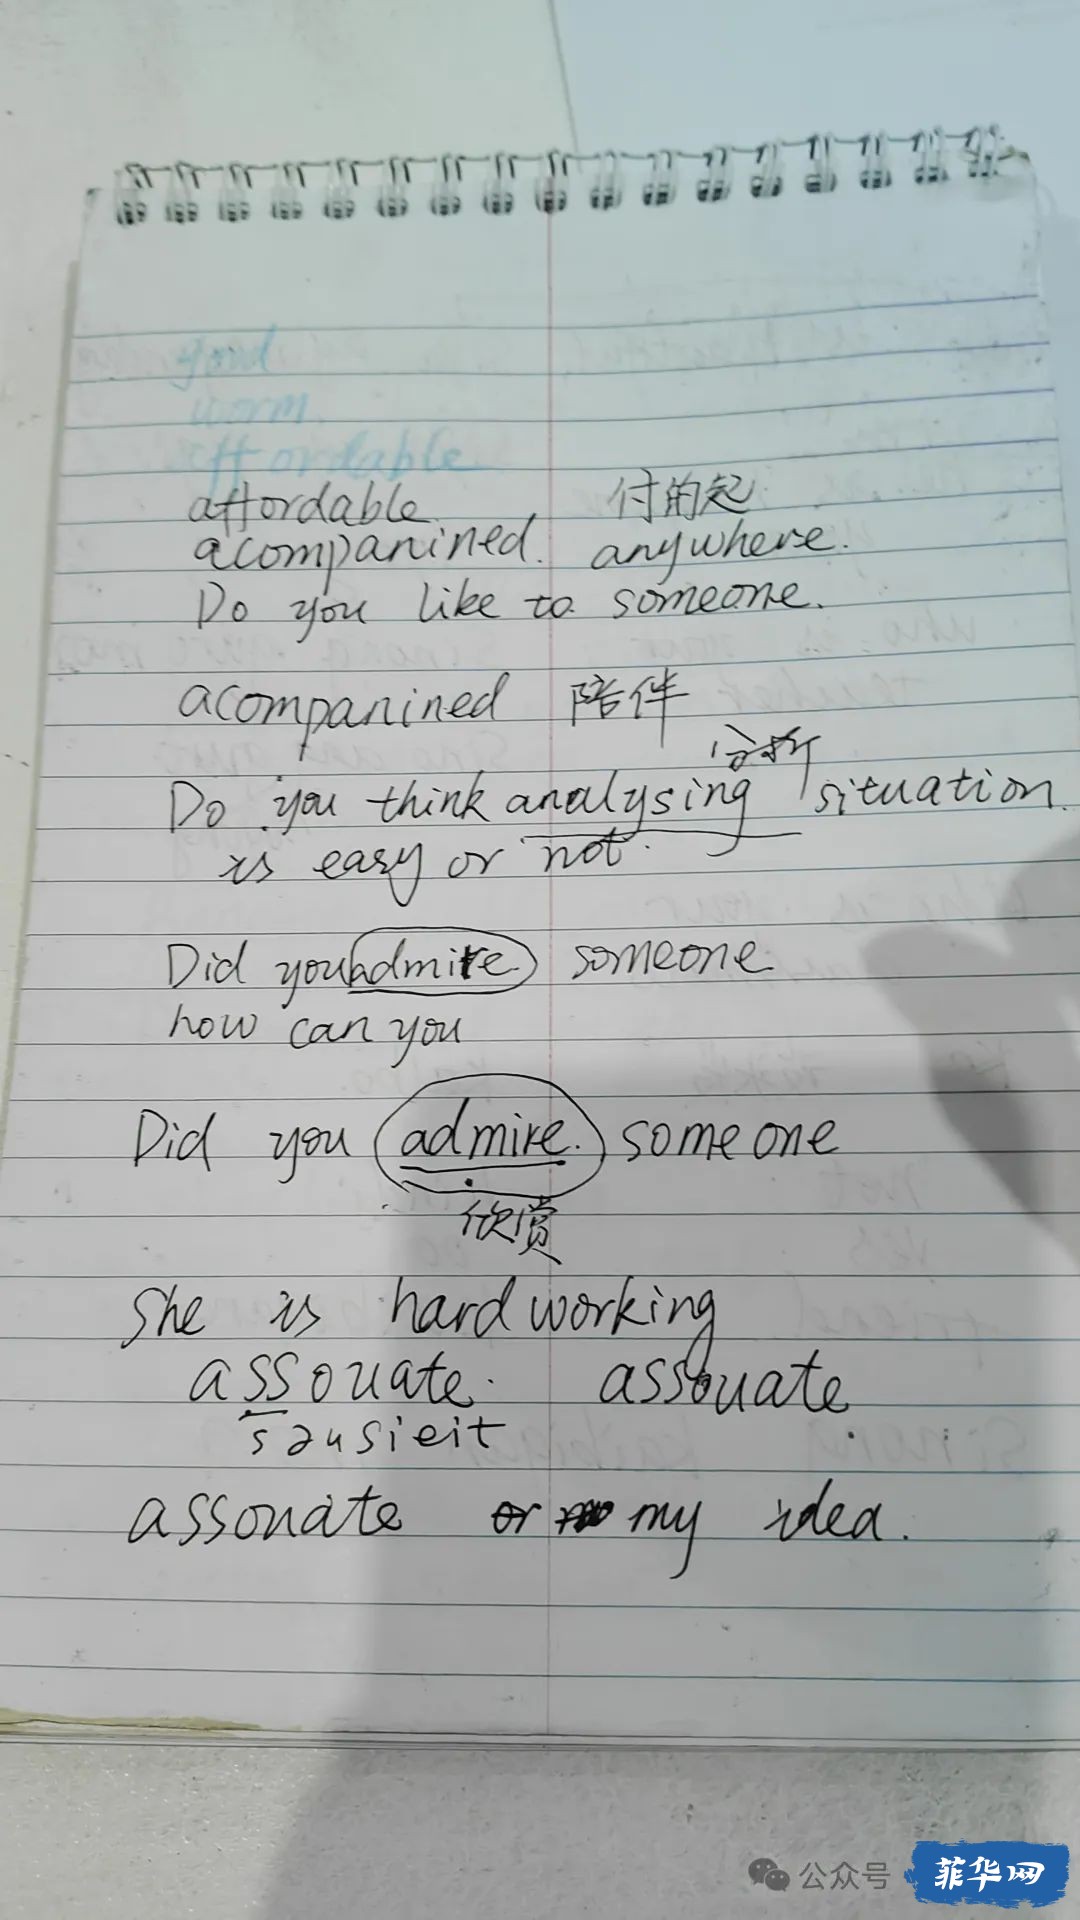 good
worm.
affordable
affordable. 付的起
acompanined. anywhere.
Do you like to someone.
acompanined 陪伴
分析
Do you think analysing situation.
is easy or not.
Did you admire someone
how can you
Did you admire. someone
欣赏
She is hard working
assouate. assouate
assouate my idea.
公众号 菲华网